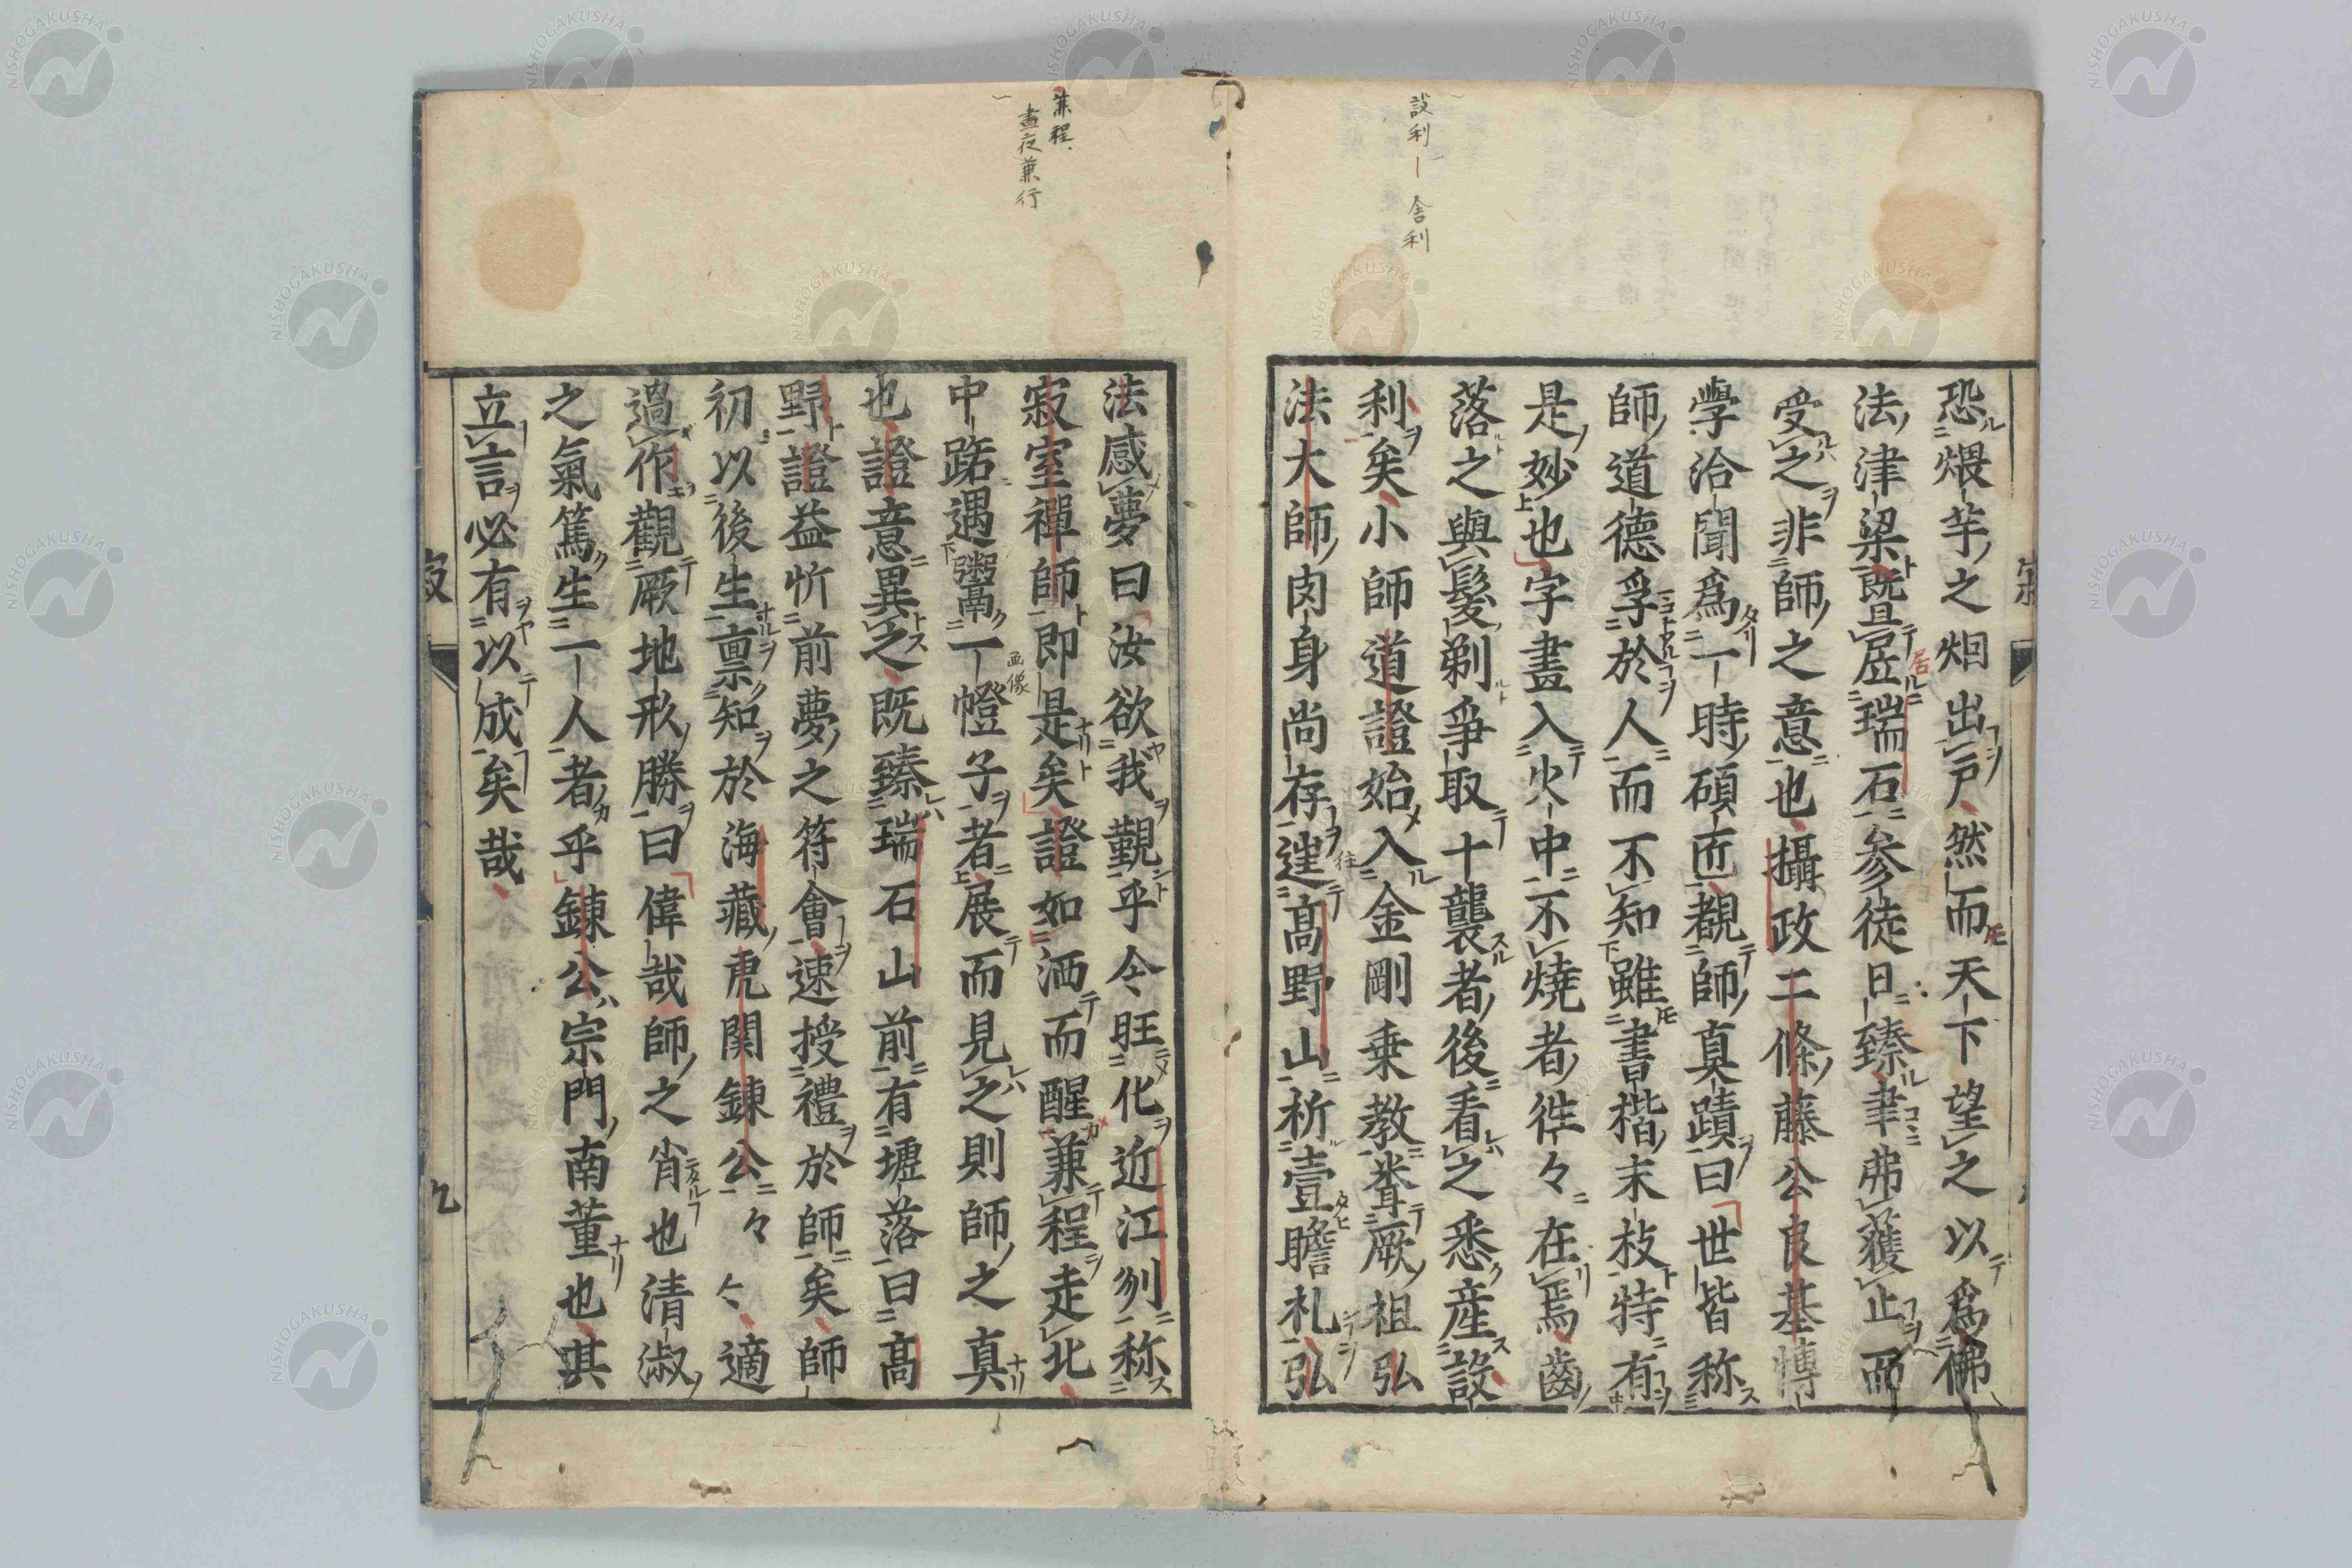 設利ー舍利
恐煨芋之烟出戸然而天下望之以爲佛
法津梁既㞐瑞石参徒日臻聿弗獲止而
受之非師之意也攝政二條藤公良基博
學洽聞爲一時碩匠覩師真蹟曰世皆称
師道德孚於人而不知雖書楷末枝特有
是妙也字畫入火中不燒者徃々在焉齒
落之與髮剃爭取十襲者後看之悉産設
利矣小師道證始入金剛乗教嵾厥祖弘
法大師肉身尚存遑髙野山祈壹瞻礼弘
兼程
晝夜兼行
法感夢曰汝欲我覲乎今旺化近江刕称
寂室禪師即是矣證如洒而醒兼程走北
中路遇鬻一幀子者展而見之則師之真
画像
也證意異之既臻瑞石山前有壚落曰髙
野證益忻前夢之符會速授禮於師矣師
初以後生禀知於海藏虎関錬公々々適
過作觀厥地形勝曰偉哉師之肖也清淑
之氣篤生一人者乎錬公宗門南董也其
立言必有以成矣哉
寂
九
NISHOGAKUSHA